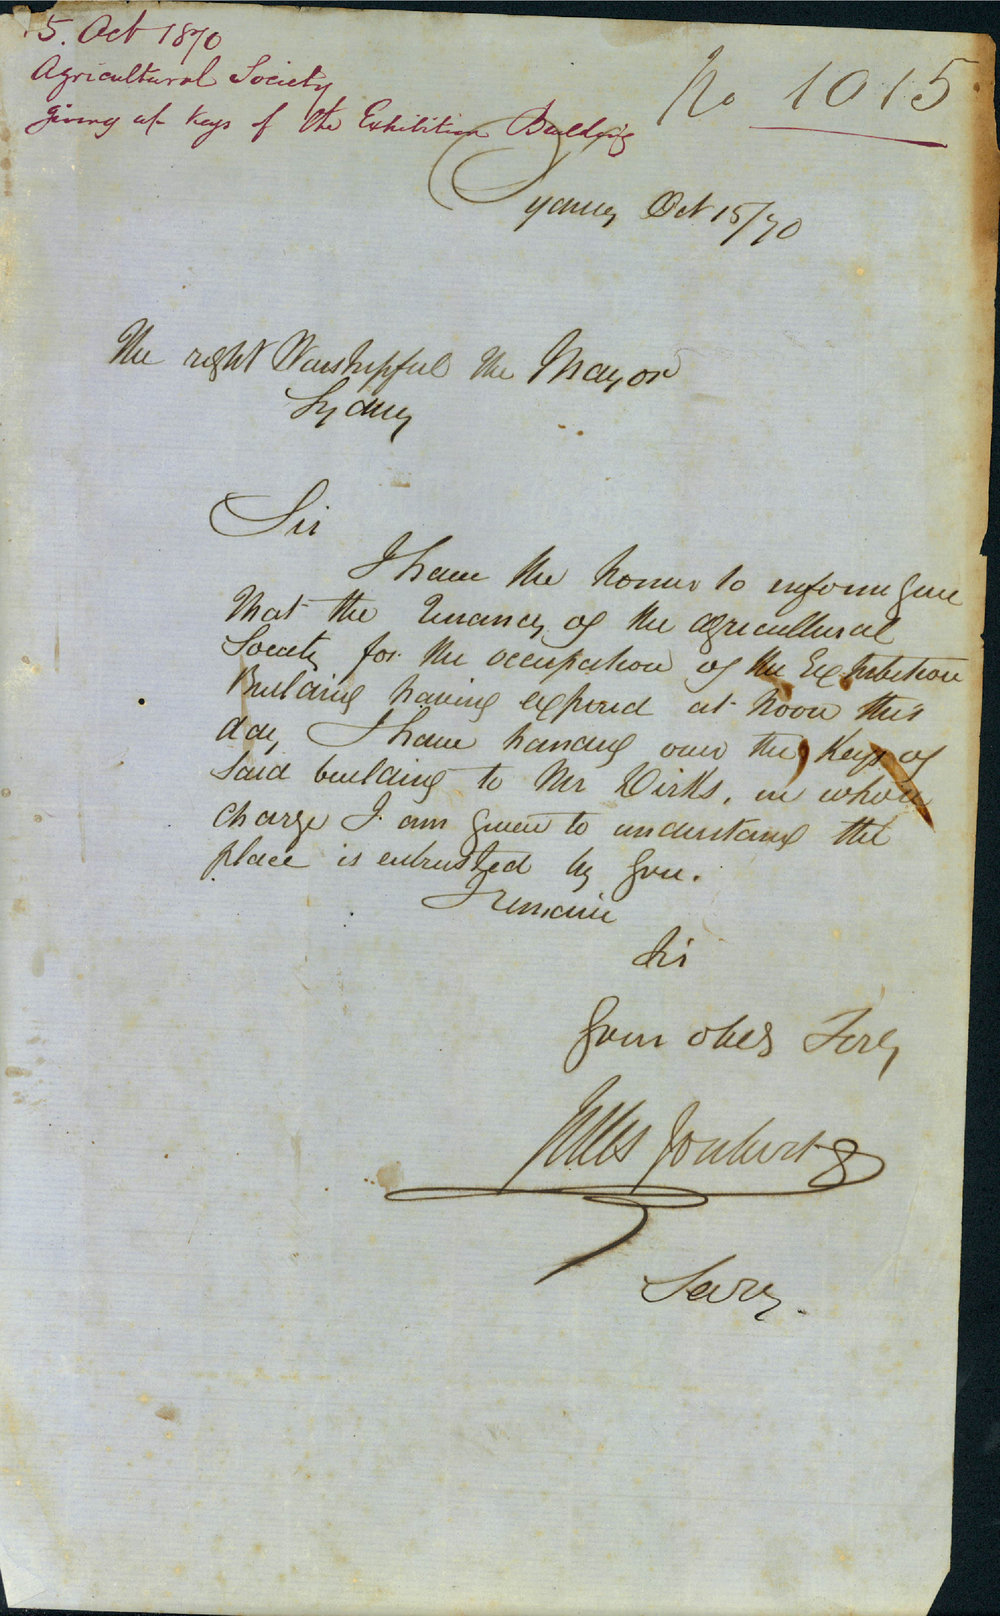 15. Oct 1870
Agricultural Society
giving up keys of the Exhibition Building
No 1015
Sydney Oct 15/70
The right Worshipful the Mayor
Sydney
Sir
I have the honor to inform you
that the tenancy of the agricultural
Society for the occupation of the Exhibition
Building having expired at noon this
day, I have handed over the keys of
said building to Mr Dirks, in whose
charge I am given to understand the
place is entrusted by you.
I remain
Sir
Your obed Servt
Jules Joubert
Secry.